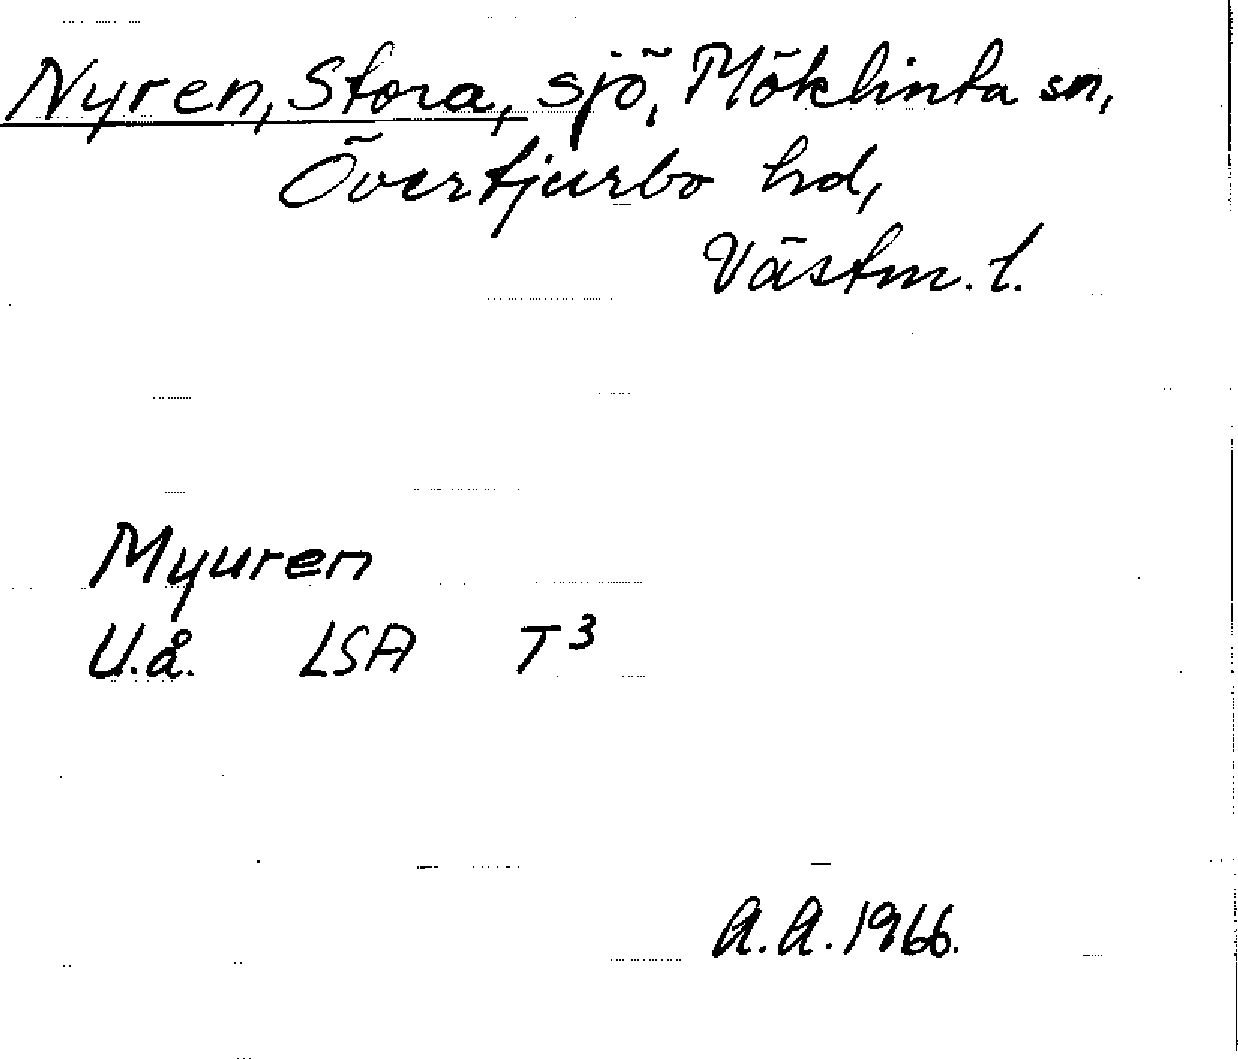 Nyren, Stora, sjö, Möklinta sn,
Övertjurbo hd,
Västm. l.
Myuren
U.å. LSA T³
A.A. 1966.